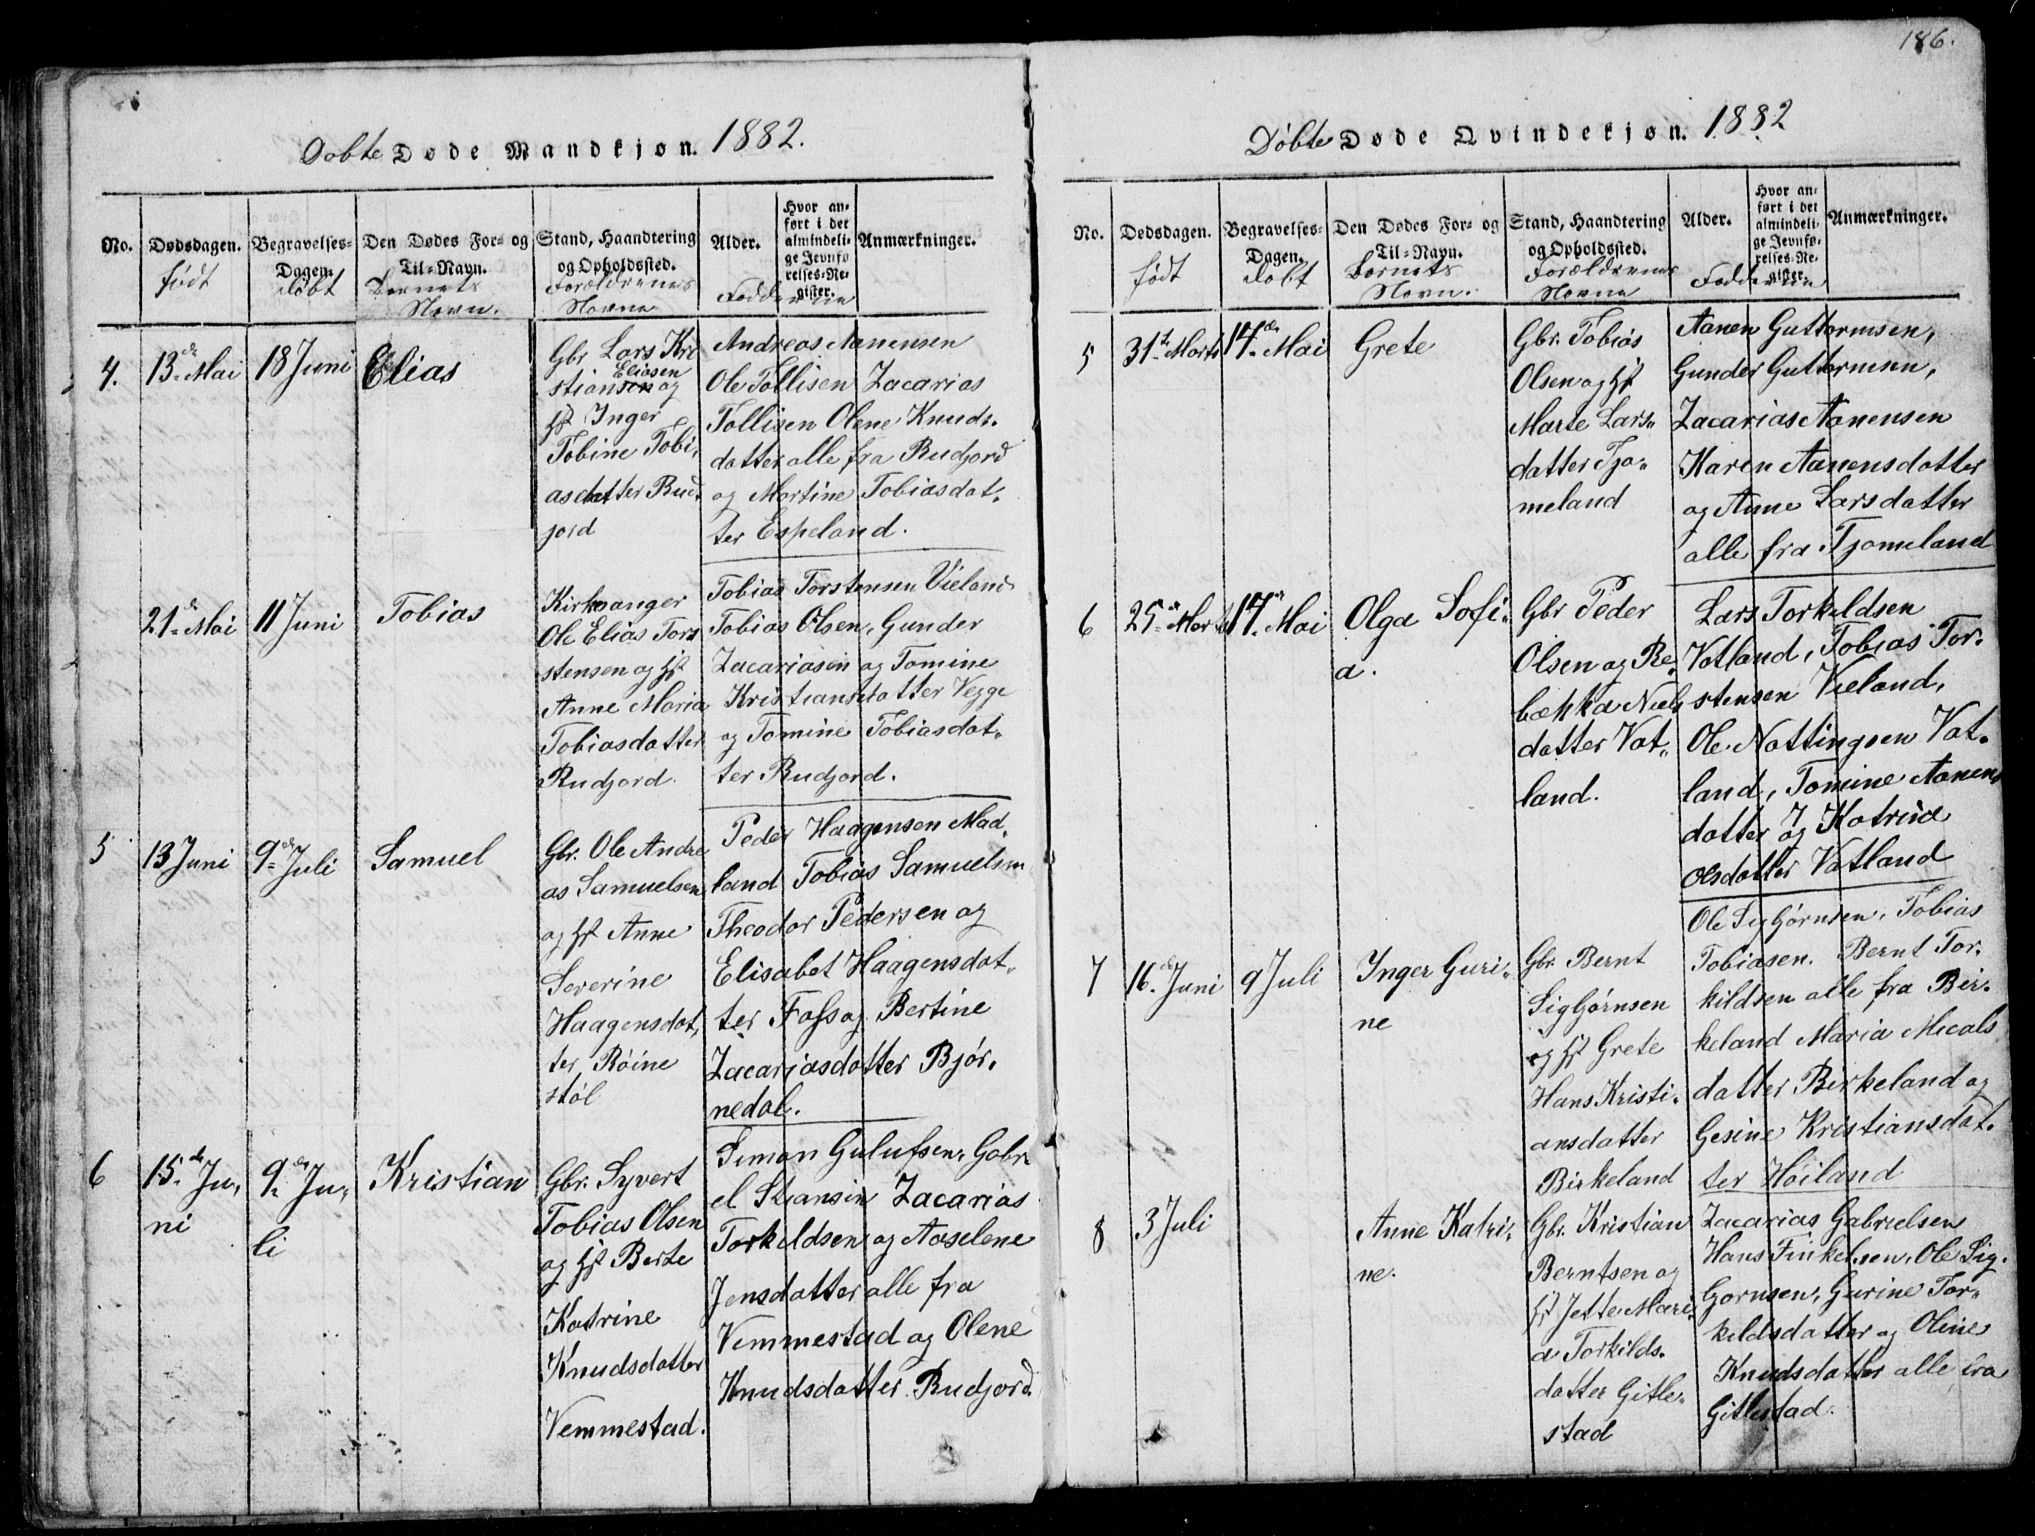 186.
Døbte Døde Mandkjøn. 1882.
No.
Dødsdagen.
født
Begravelses-
Dagen.
døbt
Den Dødes For- og
Til-Navn.
Barnets
Navn.
Stand, Haandtering
og Opholdssted.
Forældrenes
Navne
Alder.
Hvor an-
ført i det
almindeli-
ge Jevnfø-
relses-Re-
gister.
Anmærkninger.
Fadderne
4.
13de Mai
18 Juni
Elias
Gbr. Lars Kri
Eliasen
stiansen og
Hst Inger
Tobine Tobi,
asdatter Rud,
jord
Andreas Aanensen
Ole Tollisen Zacarias
Tollisen Olene Knuds.
datter alle fra Rudjord
og Martine Tobiasdat.
ter Espeland.
21de Mai
11 Juni
Tobias
Kirkesanger
Ole Elias Tors
stensen og Hst
Anne Maria
Tobiasdatter
Rudjord.
Tobias Torstensen Vieland
Tobias Olsen, Gunder
Zacariasen og Tomine
Kristiansdatter Vegge
og Tomine Tobiasdat.
ter Rudjord.
5
13 Juni
9de Juli
Samuel
Gbr. Ole Andre
as Samuelsen
og Hst Anne
Severine
Haagensdat,
ter, Røine
støl
Peder Haagensen Mad,
land Tobias Samuelsen
Theodor Pedersen og
Elisabet Haagensdat.
ter Foss og Bertine
Zacariasdatter Bjør.
nedal.
6
15de Ju,
ni
9de Ju,
li
Kristian
Gbr. Syvert
Tobias Olsen
og Hst Berte
Katrine
Knudsdatter
Vemmestad.
Simon Gulufsen, Gabri
el Stiansen Zacarias
Torkildsen og Aaselene
Jensdatter alle fra
Vemmestad og Olene
Knudsdatter Rudjord
Døbte Døde Qvindekjøn. 1882
No.
Dødsdagen.
født
Begravelses-
Dagen.
døbt
Den Dødes For- og
Til-Navn.
Barnets
Navn.
Stand, Haandtering
og Opholdssted.
Forældrenes
Navne
Alder.
Hvor an-
ført i det
almindeli-
ge Jevnfø-
relses-Re-
gister.
Anmærkninger.
Fadderne
5
31te Marts
14de Mai
Grete
Gbr. Tobias
Olsen og Hst
Marte Lars,
datter Tjo,
meland
Aanen Guttormsen,
Gunder Guttormsen,
Zacarias Aanensen
Karen Aanensdatter
og Anne Larsdatter
alle fra Tjomeland
6
25de Marts
14de Mai
Olga Sofi,
a.
Gbr Peder
Olsen og Re,
bækka Niels
datter Vat,
land.
Lars Torkildsen
Vatland, Tobias Tor.
stensen Vieland,
Ole Nottingsen Vat.
land, Tomine Aanens
datter og Katrine
Olsdatter Vatland
7
16de Juni
9 Juli
Inger Guri,
ne
Gbr. Bernt
Sigbjørnsen
og Hst Grete
Hans Kristi,
ansdatter
Birkeland
Ole Sigbjørnsen, Tobias
Tobiasen. Bernt Tor.
kildsen alle fra Bir.
keland Maria Micals
datter Birkeland og
Gesine Kristiansdat.
ter Høiland
8
3 Juli
Anne Katri,
ne.
Gbr. Kristian
Berntsen og
Hst Jette Mari
a Torkilds.
datter Gitle.
stad
Zacarias Gabrielsen
Hans Finkelsen, Ole Sig.
bjørnsen, Gurine Tor.
kildsdatter og Oline
Knudsdatter alle fra
Gitlestad.